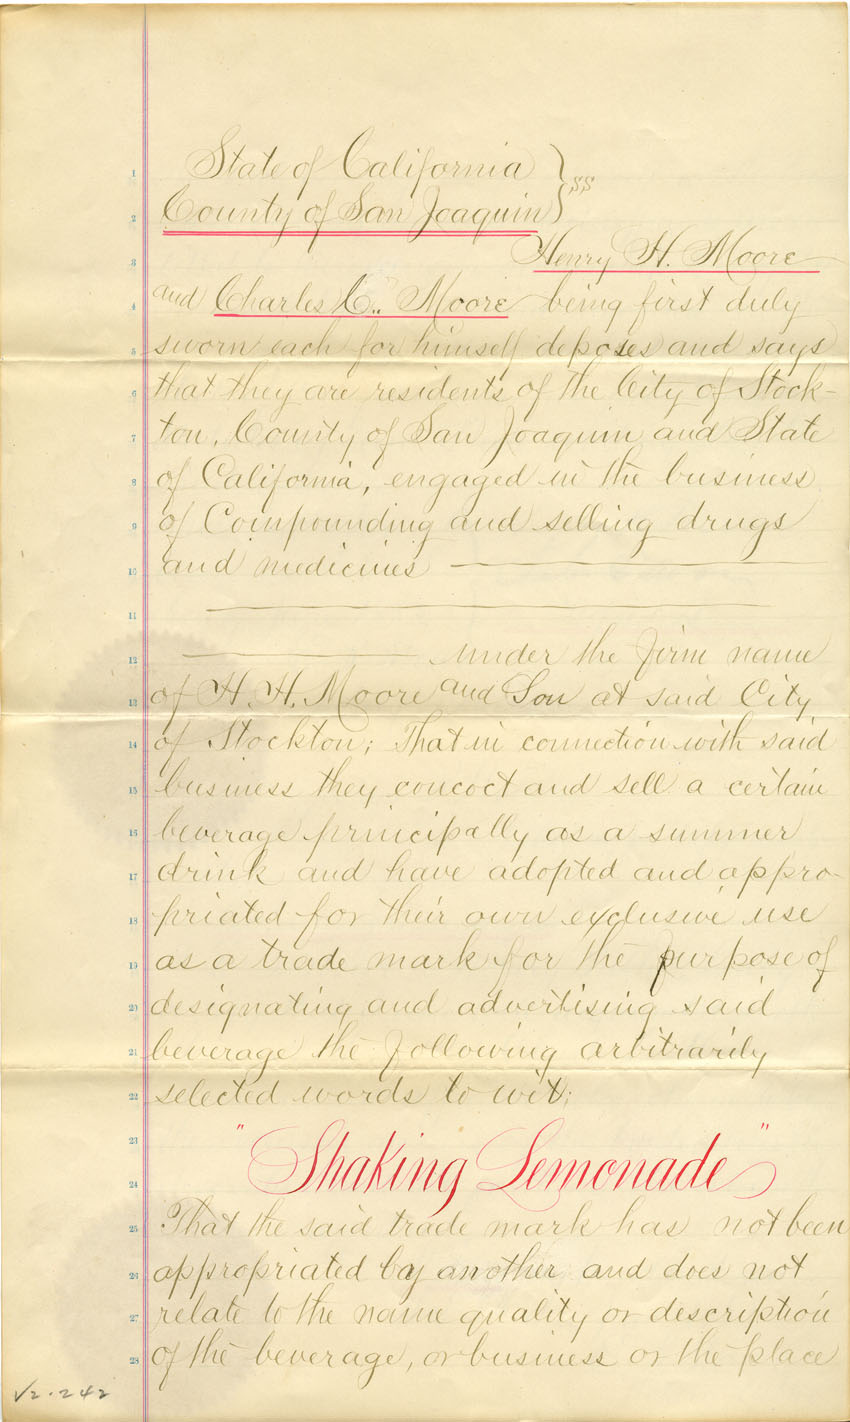 1 State of California }
2 County of San Joaquin } ss
3 Henry H. Moore
4 and Charles C. Moore being first duly
5 sworn each for himself deposes and says
6 that they are residents of the City of Stock-
7 ton, County of San Joaquin and State
8 of California, engaged in the business
9 of Compounding and selling drugs
10 and medicines
11
12 under the firm name
13 of H. H. Moore and Son at said City
14 of Stockton; That in connection with said
15 business they concoct and sell a certain
16 beverage principally as a summer
17 drink and have adopted and appro-
18 priated for their own exclusive use
19 as a trade mark for the purpose of
20 designating and advertising said
21 beverage the following arbitrarily
22 selected words to wit;
23
24 "Shaking Lemonade"
25 That the said trade mark has not been
26 appropriated by another and does not
27 relate to the name quality or description
28 of the beverage, or business or the place
V2-242